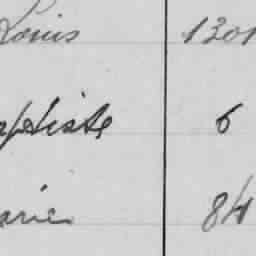 Louis 1301
aptiste 6
arie 84